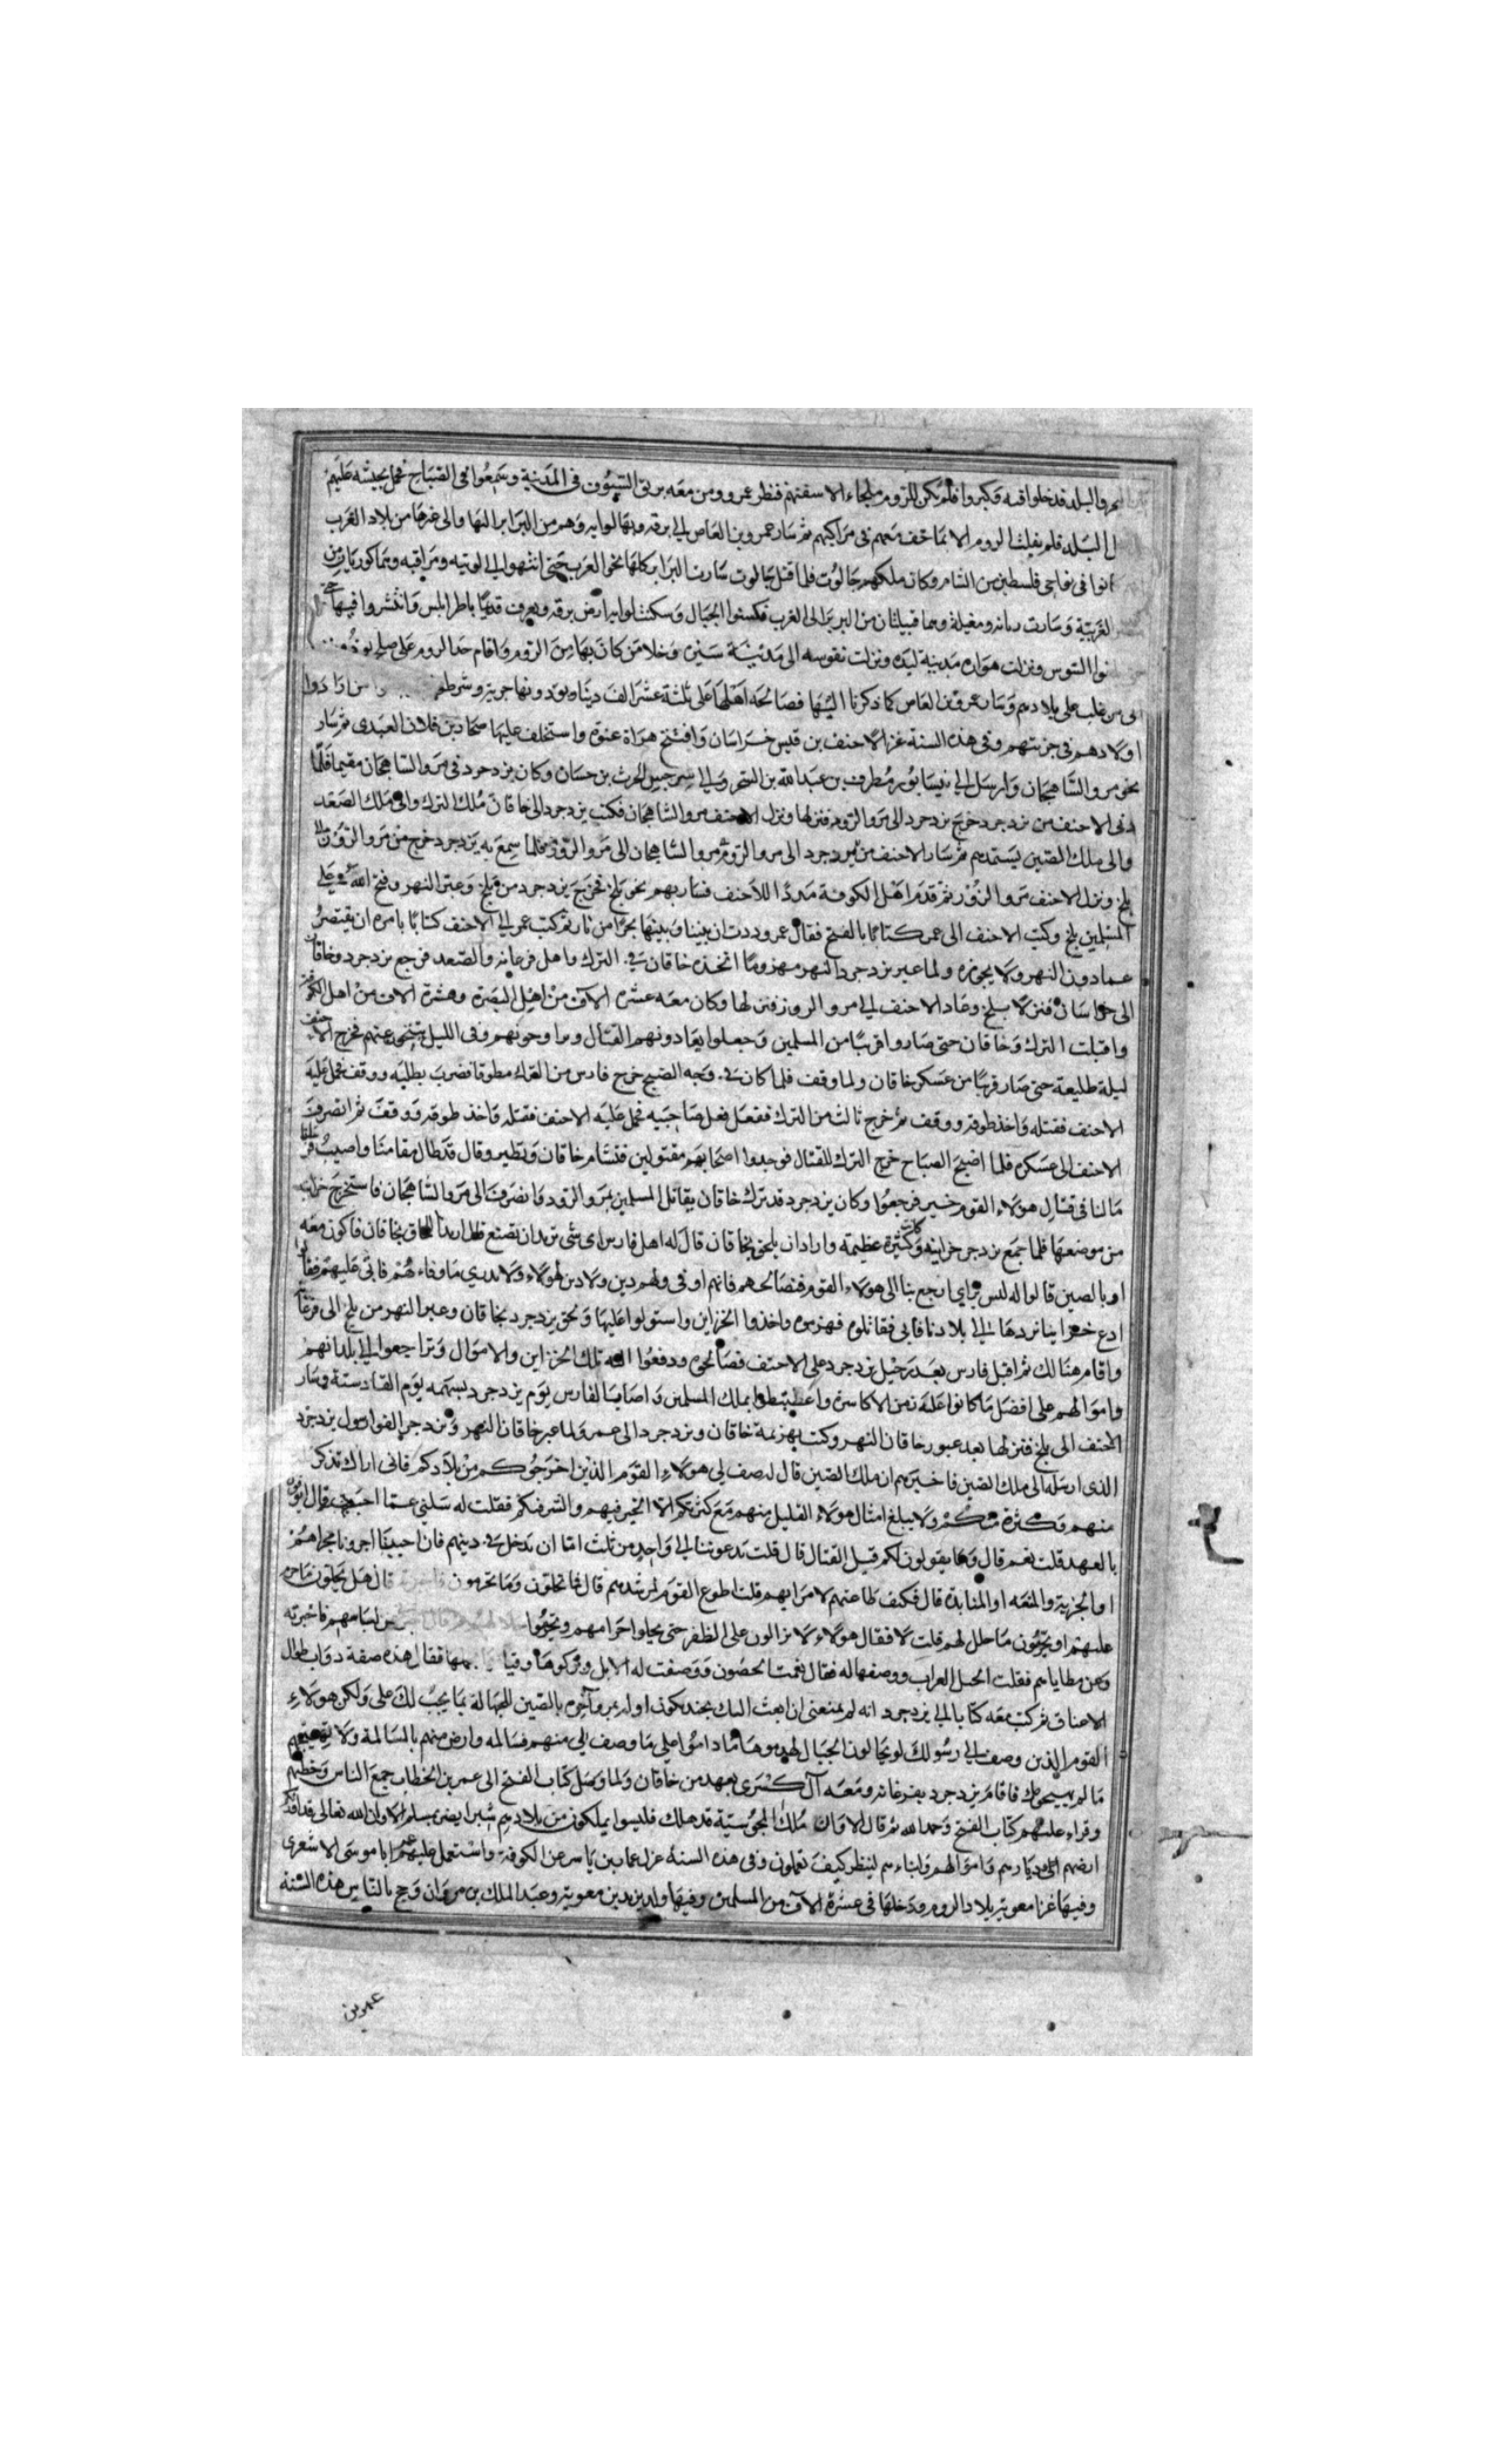 والبلد قد خلوا فيه وكبروا فلم يكن للروم ملجاء الا سفنهم فنظر عمرو ومن معه بريق السيوف فى المدينة وسمعوا فى الصباح فحمل بجيشه عليهم
البلد فلم يفلت الروم الا بما خف معهم فى مراكبهم ثم سار عمرو بن العاص الى برقه وبها لواته وهم من البرابر اليها والى غيرها من بلاد الغرب
فى نواحى فلسطين من الشام وكان ملكهم جالوت فلما قتل جالوت سارت البرابر كلها نحو الغرب حتى انتهوا الى لوبيه ومراقيه وهما كورتان من
الغربية وسارت زناته ومغيلة وهما قبيلتان من البربر الى الغرب فسكنوا الجبال وسكنت لواته ارض برقه ويعرف قديما باطرابلس وانتشروا فيها حتى
السوس ونزلت هواره مدينة لبده ونزلت نفوسه الى مدينة سبره وخلا من كان بها من الروم واقام
من غلب على بلادهم وسار عمرو بن العاص كما ذكرنا اليها فصالحه اهلها على ثلثة عشر الف دينار يؤدونها جزية وشرطوا من ارادوا
اولادهم فى جزيتهم وفى هذه السنة غزا الاحنف بن قيس خراسان وافتتح هراة عنوة واستخلف عليها صحار بن فلان العبدى ثم سار
نحو مرو الشاهجان وارسل الى نيسابور مطرف بن عبد الله بن الشخير والى سرخس الحرث بن حسان وكان يزدجرد فى مرو الشاهجان مقيما فلما
دنى الاحنف من يزدجرد خرج يزدجرد الى مرو الروذ فنزلها ونزل الاحنف مرو الشاهجان فكتب يزدجرد الى خاقان ملك الترك والى ملك الصغد
والى ملك الصين يستمدهم ثم سار الاحنف من مرو الشاهجان الى مرو الروذ فلما سمع به يزدجرد خرج من مرو الروذ الى
بلخ ونزل الاحنف مرو الروذ ثم قدم اهل الكوفة مددا للاحنف فسار بهم نحو بلخ فخرج يزدجرد من بلخ وعبر النهر وفتح الله على
المسلمين بلخ وكتب الاحنف الى عمر كتابا بالفتح فقال عمر وددت ان بيننا وبينها بحرا من نار ثم كتب عمر الى الاحنف كتابا يامره ان يقتصر
على مادون النهر ولا يجوزه ولما عبر يزدجرد النهر مهزوما انجده خاقان فى الترك واهل فرغانه والصغد فرجع يزدجرد وخاقان
الى خراسان فنزلا بلخ وعاد الاحنف الى مرو الروذ فنزلها وكان معه عشره الاف من اهل البصرة وعشرة الاف من اهل الكوفة
واقبلت الترك وخاقان حتى صاروا قريبا من المسلمين وجعلوا يغادونهم القتال ويراوحونهم وفى الليل يتنحون عنهم فخرج الاحنف
ليلة طليعة حتى صار قريبا من عسكر خاقان ولما وقف فلما كان فى وجه الصبح خرج فارس من الترك مطوقا فضرب بطبله ووقف فحمل عليه
الاحنف فقتله واخذ طوقه ووقف ثم خرج ثالث من الترك ففعل فعل صاحبيه فحمل عليه الاحنف فقتله واخذ طوقه ووقف ثم انصرف
الاحنف الى عسكره فلما اصبح الصباح خرج الترك للقتال فوجدوا اصحابهم مقتولين فتشام خاقان وتطير وقال قد طال مقامنا واصيب
مالنا فى قتال هولاء القوم خير فرجعوا وكان يزدجرد قد ترك خاقان يقاتل المسلمين بمرو الروذ وانصرف الى مرو الشاهجان فاستخرج خزاينه
من موضعها فلما جمع يزدجرد خزاينه وكانت كثيرة عظيمة واراد ان يلحق بخاقان قال له اهل فارس اى شى تريد ان تصنع قال اريد اللحاق بخاقان فاكون معه
او بالصين قالوا له ليس براى ارجع بنا الى هولاء القوم فنصالحهم فانهم اوفى ولهم دين ولا دين لهولاء ولا ندرى ما وفاءهم فابى عليهم فقالوا
ادع خزاينا نردها الى بلادنا فابى فقاتلوه فهزموه واخذوا الخزاين واستولوا عليها ولحق يزدجرد بخاقان وعبر النهر من بلخ الى فرغانه
واقام هنالك ثم اقبل فارس بعد رحيل يزدجرد على الاحنف فصالحوه ودفعوا اليه تلك الخزاين والاموال وتراجعوا الى بلدانهم
واموالهم على افضل ما كانوا عليه زمن الاكاسرة واغتبطوا بملك المسلمين واصاب الفارس يوم يزدجرد بسهمه يوم القادسية وسار
الاحنف الى بلخ فنزلها بعد عبور خاقان النهر وكتب بهزيمة خاقان ويزدجرد الى عمر ولما عبر خاقان النهر ويزدجرد الفوا رسول يزدجرد
الذى ارسله الى ملك الصين فاخبرهم ان ملك الصين قال له صف لى هولاء القوم الذين اخرجوكم من بلادكم فانى اراك تذكر قلة
منهم وكثرة منكم ولا يبلغ امثال هولاء القليل منهم مع كثرتكم الا الخير فيهم والشر فيكم فقلت له سلنى عما احببت قال ايوفون
بالعهد قلت نعم قال وما يقولون لكم قبل القتال قال قلت يدعوننا الى واحد من ثلث اما ان ندخل فى دينهم فان احببنا اجرونا مجراهم
او الجزية والمنعه او المنابذة قال فكيف طاعتهم لامرايهم قلت اطوع القوم لمرشدهم قال فما يحلون وما يحرمون فاخبرته قال هل يحلون ما حرم
عليهم او يحرمون ما حلل لهم قلت لا فقال هولاء لا يزالون على الظفر حتى يحلوا حرامهم ويحرموا حلالهم ثم قال اخبرنى عن لباسهم فاخبرته
وعن مطاياهم فقلت الخيل العراب ووصفها له فقال نعمت الحصون ووصفت له الابل وبروكها وقيامها بحملها فقال هذه صفة دواب طوال
الاعناق ثم كتب معه كتابا الى يزدجرد انه لم يمنعنى ان ابعث اليك بجند يكون اوله بمرو وآخره بالصين الجهالة بما يجب لك على ولكن هولاء
القوم الذين وصف لى رسولك لو يحاولون الجبال لهدوها ما داموا على ما وصف لى منهم فسالمه وارض منهم بالمسالمة ولا تهيجهم
مالم يهيجوك فاقام يزدجرد بفرغانه ومعه آل كسرى بعهد من خاقان ولما وصل كتاب الفتح الى عمر بن الخطاب جمع الناس وخطبهم
وقراء عليهم كتاب الفتح وحمد الله ثم قال الا وان ملك المجوسية قد هلك فليسوا يملكون من بلادهم شبرا يضر بمسلم الا وان الله تعالى قد اورثكم
ارضهم وديارهم واموالهم وابناءهم لينظر كيف تعملون وفى هذه السنة عزل عمار بن ياسر عن الكوفة واستعمل عليهم ابا موسى الاشعرى
وفيها غزا معوية بلاد الروم ودخلها فى عشرة الاف من المسلمين وفيها ولد يزيد بن معوية وعبد الملك بن مروان وحج بالناس هذه السنة
عمر بن